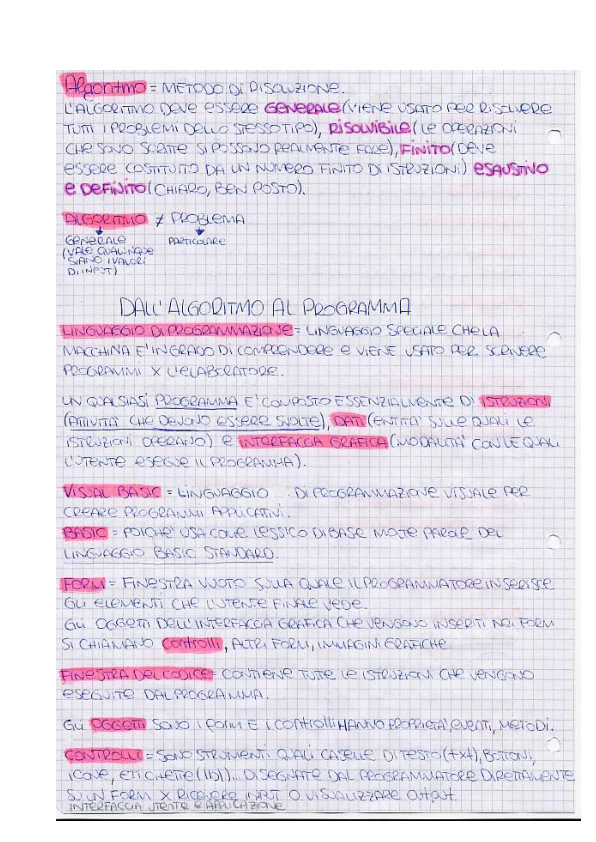 Algoritmo = METODO DI RISOLUZIONE.
L'ALGORITMO DEVE ESSERE GENERALE (VIENE USATO PER RISOLVERE
TUTTI I PROBLEMI DELLO STESSO TIPO), RISOLVIBILE (LE OPERAZIONI
CHE SONO SCRITTE SI POSSONO REALMENTE FARE), FINITO (DEVE
ESSERE COSTITUITO DA UN NUMERO FINITO DI ISTRUZIONI) ESAUSTIVO
E DEFINITO (CHIARO, BEN POSTO).
ALGORITMO ≠ PROBLEMA
GENERALE PARTICOLARE
(VALE QUALUNQUE
SIANO I VALORI
DI INPUT)
DALL'ALGORITMO AL PROGRAMMA
LINGUAGGIO DI PROGRAMMAZIONE = LINGUAGGIO SPECIALE CHE LA
MACCHINA E' IN GRADO DI COMPRENDERE E VIENE USATO PER SCRIVERE
PROGRAMMI X L'ELABORATORE.
UN QUALSIASI PROGRAMMA E' COMPOSTO ESSENZIALMENTE DI ISTRUZIONI
(ATTIVITA' CHE DEVONO ESSERE SVOLTE), DATI (ENTITA' SULLE QUALI LE
ISTRUZIONI OPERANO) E INTERFACCIA GRAFICA (MODALITA' CON LE QUALI
L'UTENTE ESEGUE IL PROGRAMMA).
VISUAL BASIC = LINGUAGGIO DI PROGRAMMAZIONE VISUALE PER
CREARE PROGRAMMI APPLICATIVI.
BASIC = POICHE' USA COME LESSICO DI BASE MOLTE PAROLE DEL
LINGUAGGIO BASIC STANDARD.
FORM = FINESTRA VUOTO SULLA QUALE IL PROGRAMMATORE INSERISCE
GLI ELEMENTI CHE L'UTENTE FINALE VEDE.
GLI OGGETTI DELL'INTERFACCIA GRAFICA CHE VENGONO INSERITI NEI FORM
SI CHIAMANO CONTROLLI, ALTRI FORM, IMMAGINI GRAFICHE
FINESTRA DEL CODICE = CONTIENE TUTTE LE ISTRUZIONI CHE VENGONO
ESEGUITE DAL PROGRAMMA.
GLI OGGETTI SONO I FORM E I CONTROLLI HANNO PROPRIETA', EVENTI, METODI.
CONTROLLI = SONO STRUMENTI QUALI CASELLE DI TESTO (txt), BOTTONI,
ICONE, ETICHETTE (lbl)... DISEGNATE DAL PROGRAMMATORE DIRETTAMENTE
SU UN FORM X RICEVERE INPUT O VISUALIZZARE OUTPUT.
INTERFACCIA UTENTE E APPLICAZIONE